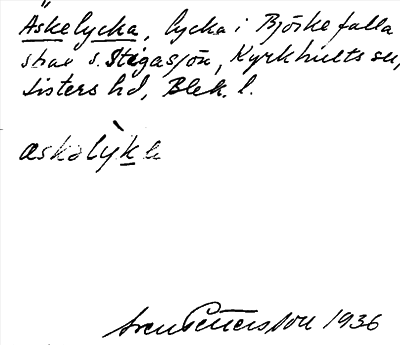 Äskelycka, lycka i Björkefalla
strax s. Stegasjön, Kyrkhults sn,
Listers hd, Blek. l.
æskəlỳkə
Sven Petersson 1936